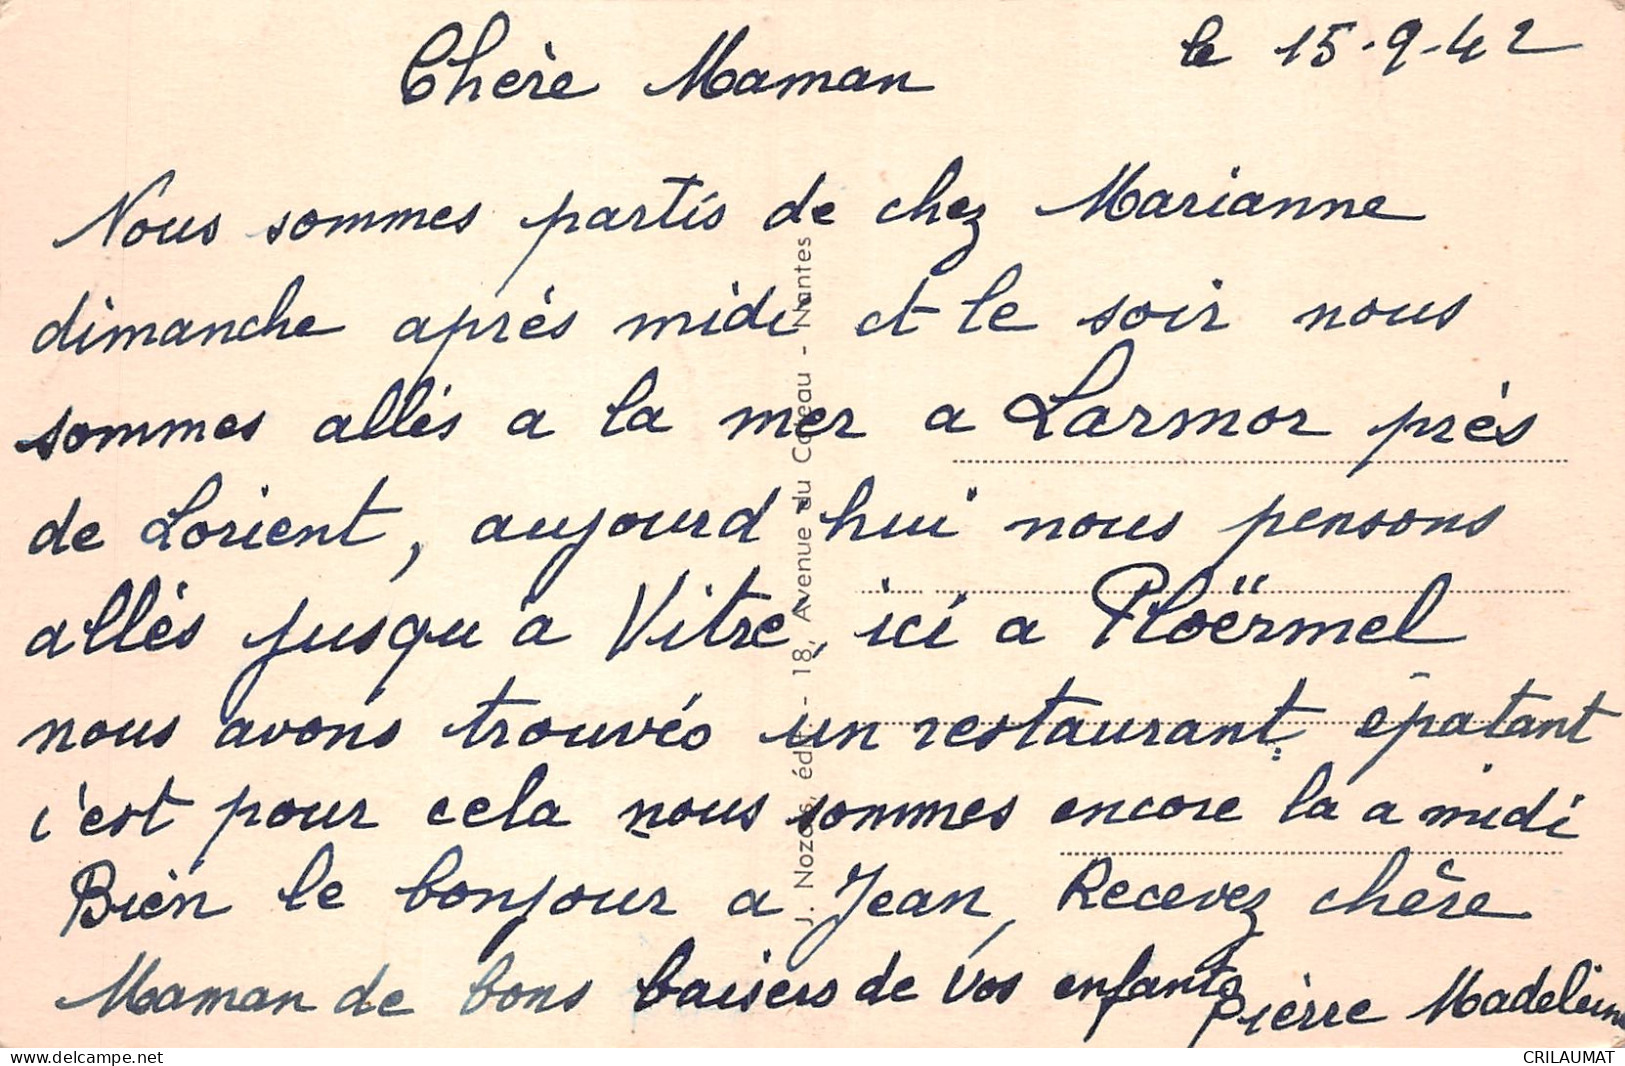 le 15-9-42
Chère Maman
Nous sommes partis de chez Marianne
dimanche après midi et le soir nous
sommes allés a la mer a Larmor près
de Lorient, aujourd hui nous pensons
allés jusqu'a Vitré, ici a Ploërmel
nous avons trouvés un restaurant épatant
c'est pour cela nous sommes encore la a midi
Bien le bonjour a Jean, Recevez chère
Maman de bons baisers de vos enfants
Pierre Madeleine
J. Nozais, édit. - 18, Avenue du Coteau - Nantes
delcampe.net
CRILAUMAT